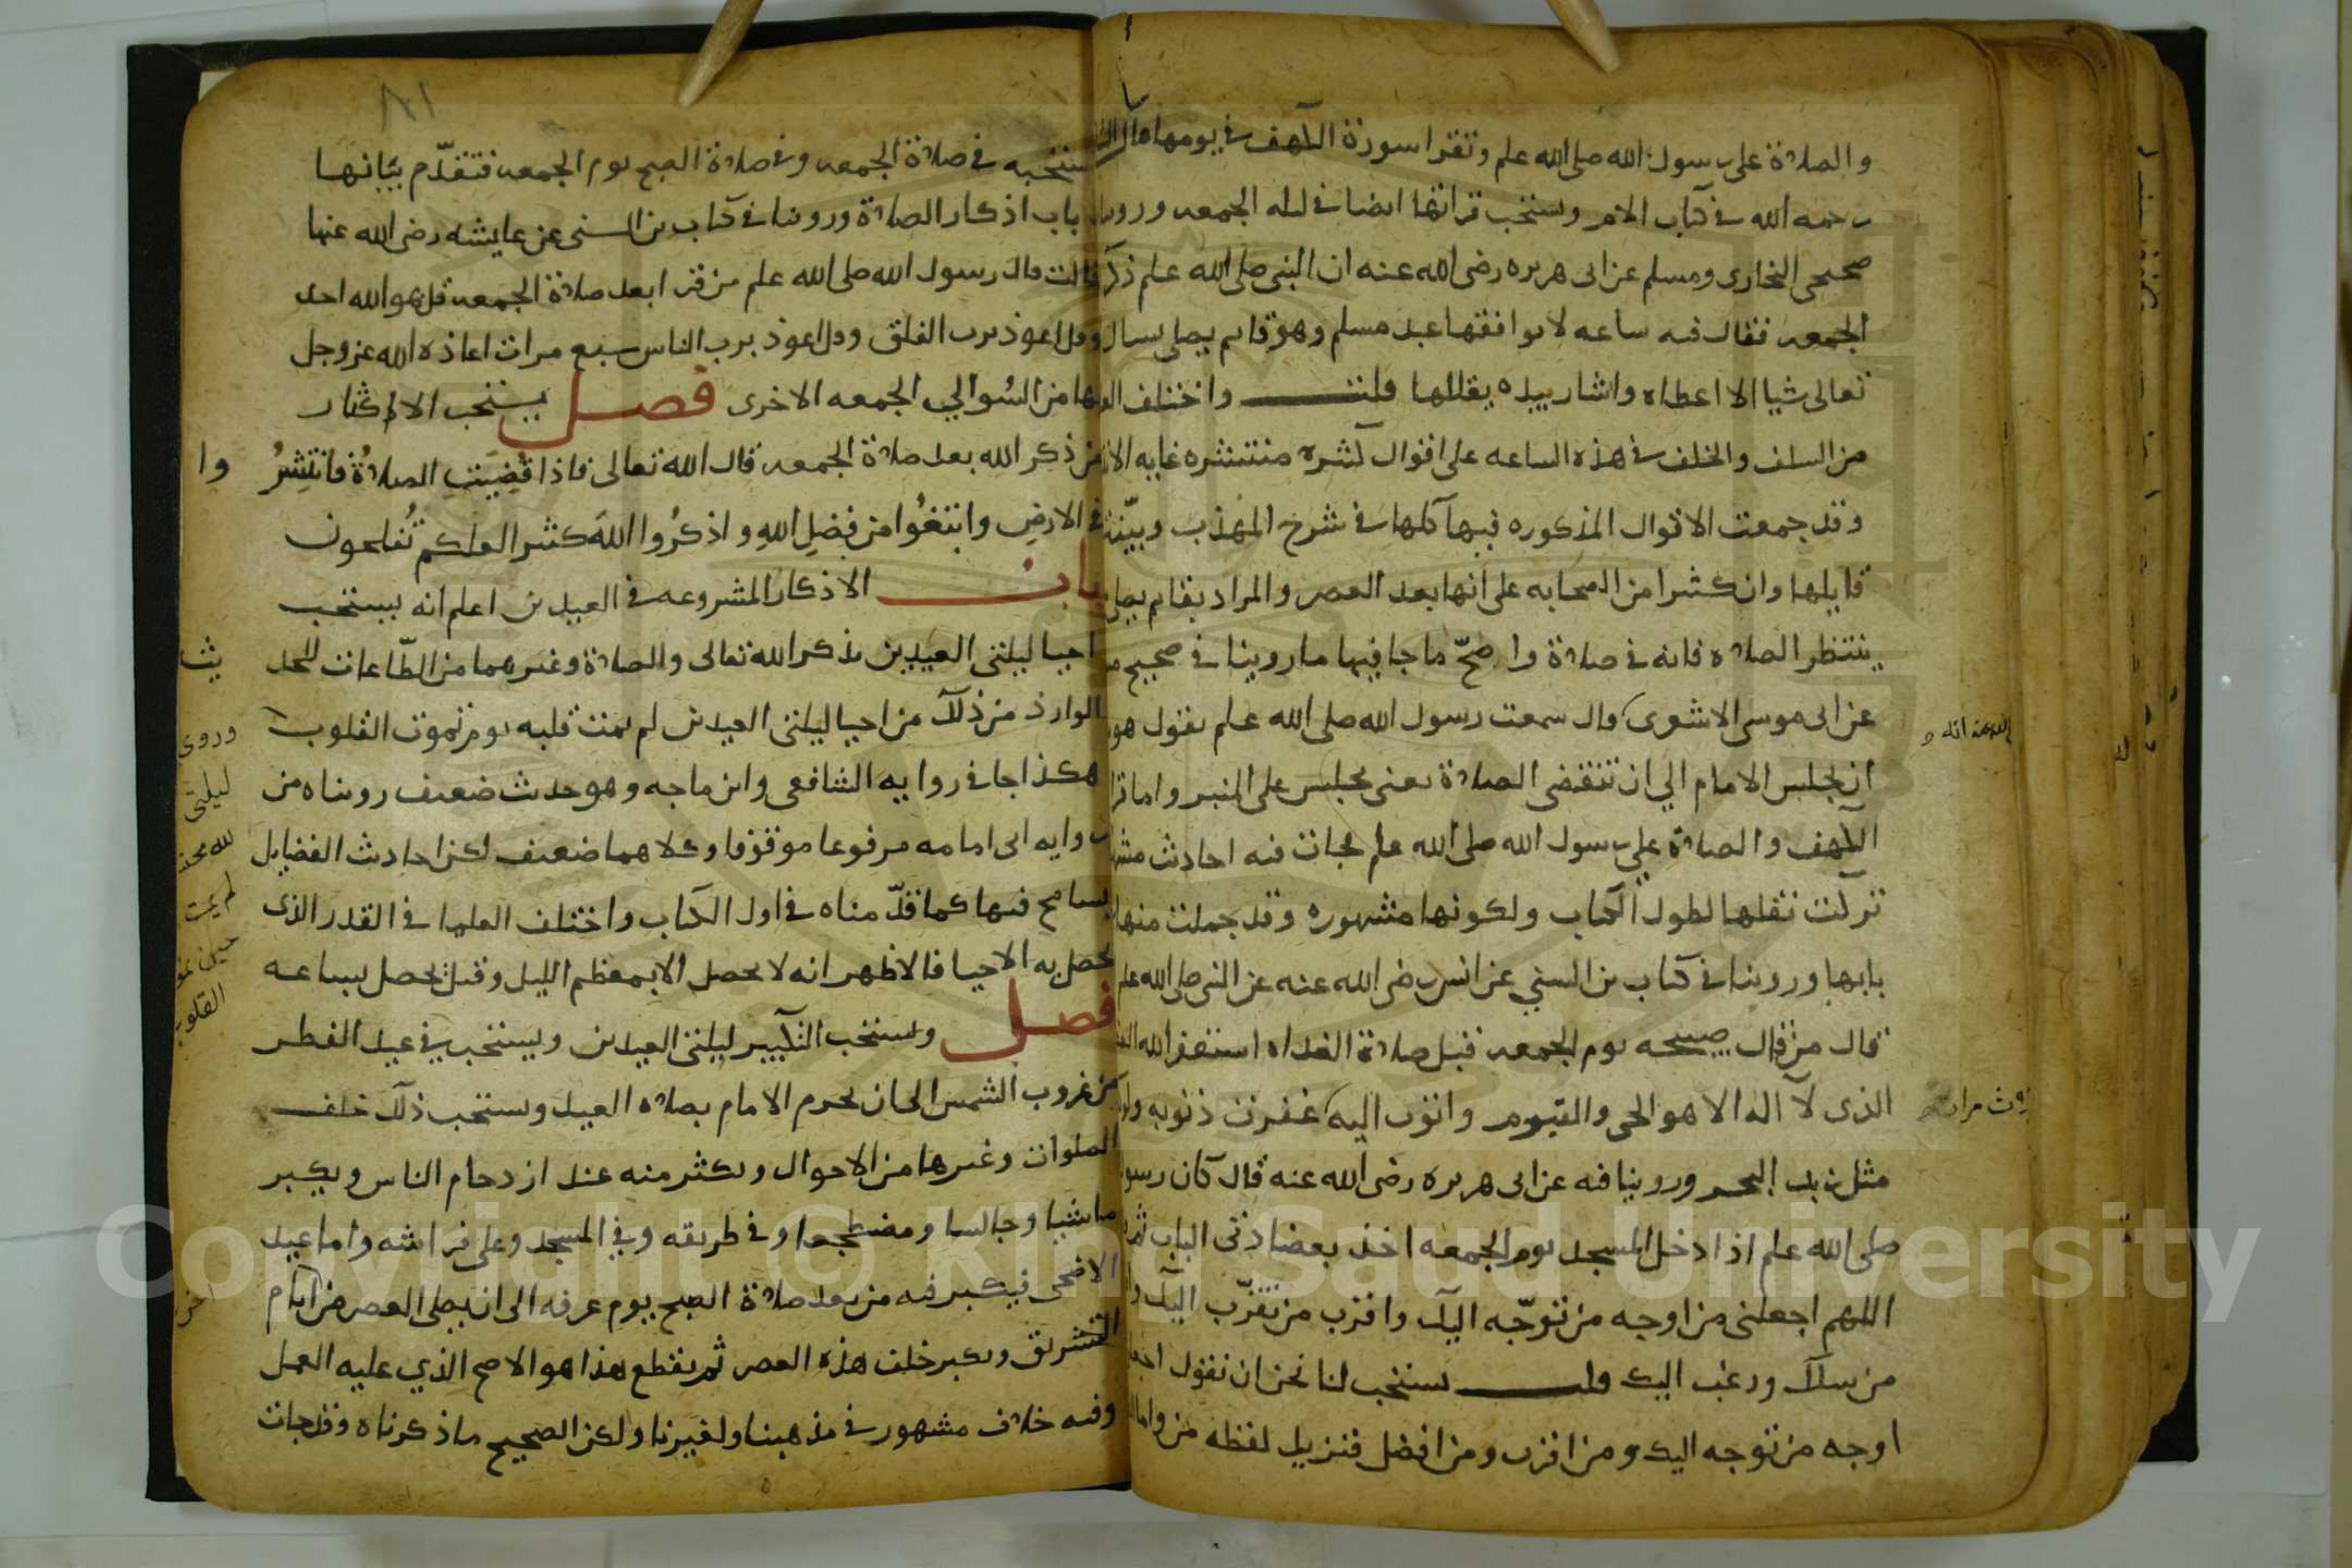 والصلاة على رسول الله صلى الله علم وتقرا سورة الكهف في يومها قال
رحمه الله في كتاب الام ويستحب قراتها ايضا في ليله الجمعه وروينا
صحيحي البخاري ومسلم عن ابي هريره رضي الله عنه ان النبي صلى الله علم ذكر
الجمعه فقال فيه ساعه لا يوافقها عبد مسلم وهو قايم يصلي يسال
تعالى شيا الا اعطاه واشار بيده يقللها قلت واختلف
من السلف والخلف في هذه الساعه على اقوال كثيره منتشره غايه
وقد جمعت الاقوال المذكوره فيها كلها في شرح المهذب وبينت
قايلها وان كثيرا من الصحابه على انها بعد العصر والمراد بقايم يصلي
ينتظر الصلاه فانه في صلاة واصحّ ما جا فيها ما روينا في صحيح
عن ابي موسى الاشعري قال سمعت رسول الله صلى الله علم يقول هو
ان يجلس الامام الي ان تنقضي الصلاة يعني يجلس على المنبر واما
الكهف والصلاة علي رسول الله صلى الله علم فجات فيه احاديث
تركت نقلها لطول الكتاب ولكونها مشهوره وقد جملت منها
بابها وروينا في كتاب بن السني عن انس رضي الله عنه عن النبي صلى الله علم
قال من قال صبيحه يوم الجمعه قبل صلاة الغداه استغفر الله
الذي لا اله الا هو الحي والقيوم واتوب اليه غفرت ذنوبه ولو
مثل زبد البحر وروينا فيه عن ابي هريره رضي الله عنه قال كان رسول
صلى الله علم اذا دخل المسجد يوم الجمعه اخذ بعضادتي الباب ثم
اللهم اجعلني من اوجه من توجّه اليك واقرب من تقرّب اليك
من سالك ورغب اليك قلت يستحب لنا نحن ان نقول
اوجه من توجه اليك ومن اقرب ومن افضل فنزيل لفظه من واما
ثلاث مرات
يستحبه في صلاة الجمعه وفي صلاة الصبح يوم الجمعه فتقدّم بيانها
باب اذكار الصلاة وروينا في كتاب بن السني عن عايشه رضي الله عنها
قالت قال رسول الله صلى الله علم من قرا بعد صلاة الجمعه قل هو الله احد
وقل اعوذ برب الفلق وقل اعوذ برب الناس سبع مرات اعاذه الله عز وجل
بها من السُو الي الجمعه الاخرى فصل يستحب الاكثار
من ذكر الله بعد صلاة الجمعه قال الله تعالى فاذا قُضِيَتِ الصلاةُ فانتَشِرُ وا
في الارضِ وابتغُوا من فضلِ اللهِ واذكُرُوا اللهَ كثيرا لعلكم تُفلحون
باب الاذكار المشروعه في العيدين اعلم انه يستحب
احيا ليلتي العيدين بذكر الله تعالى والصلاة وغيرهما من الطّاعات للحد يث
الوارد من ذلك من احيا ليلتي العيدين لم يمت قلبه يوم تموت القلوب
هكذا جا في روايه الشافعي وابن ماجه وهو حديث ضعيف رويناه من
روايه ابى امامه مرفوعا موقوفا وكلاهما ضعيف لكن احاديث الفضايل
يسامح فيها كما قدّمناه في اول الكتاب واختلف العلما في القدر الذي
يحصل به الاحيا فالاظهر انه لا يحصل الا بمعظم الليل وقيل يحصل بساعه
فصل ويستحب التكبير ليلتي العيدين ويستحب في عيد الفطر
من غروب الشمس الى ان يحرم الامام بصلاه العيد ويستحب ذلك خلف
الصلوات وغيرها من الاحوال ويكثر منه عند ازدحام الناس ويكبر
ماشيا وجالسا ومضطجعا وفي طريقه وفي المسجد وعلى فراشه واما عيد
الاضحى فيكبر فيه من بعد صلاة الصبح يوم عرفه الى ان يصلى العصر من ايام
التشريق ويكبر خلف هذه العصر ثم يقطع هذا هو الاصح الذي عليه العمل
وفيه خلاف مشهور في مذهبنا ولغيرنا ولكن الصحيح ما ذكرناه وقد جات
وروي
ليلتي
لم يمت
القلوب
٨١
Copyright © King Saud University